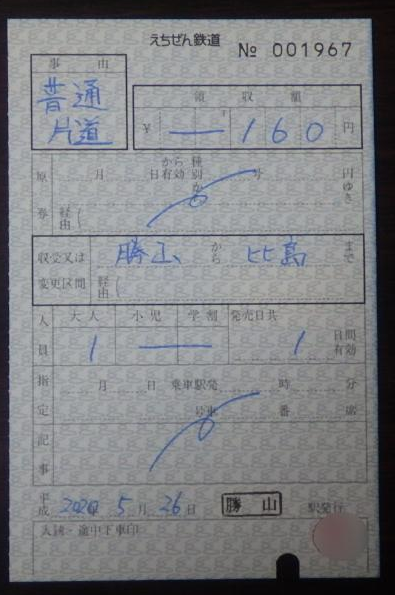 えちぜん鉄道
№ 001967
事由
普通
片道
領収額
¥ 160 円
原券 月 日から有効 種別か 号 円ゆき
経由(
収受又は変更区間 勝山 から 比島 まで
経由(
人員 大人 小児 学割 発売日共
1 1 日間有効
指定 月 日 乗車駅発 時 分
号車 番 席
記事
平成 2020年 5月 26日 勝山 駅発行
入鋏・途中下車印